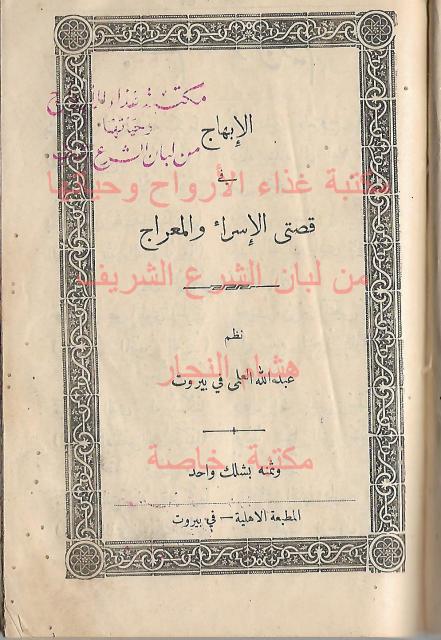 مكتبة غذاء الأرواح
وحياتها
من لبان الشرع الشريف
الإبهاج
في
مكتبة غذاء الأرواح وحياتها
قصتي الإسراء والمعراج
من لبان الشرع الشريف
نظم
هشام النجار
عبد الله العلمي في بيروت
مكتبة خاصة
وثمنه بشلك واحد
المطبعة الاهلية — في بيروت